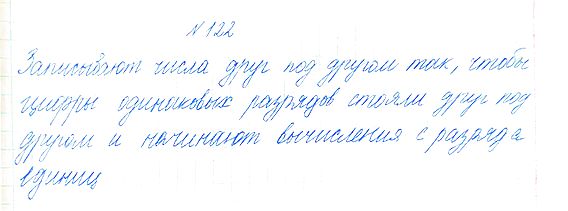 № 122
Записывают числа друг под другом так, чтобы
цифры одинаковых разрядов стояли друг под
другом и начинают вычисления с разряда
единиц